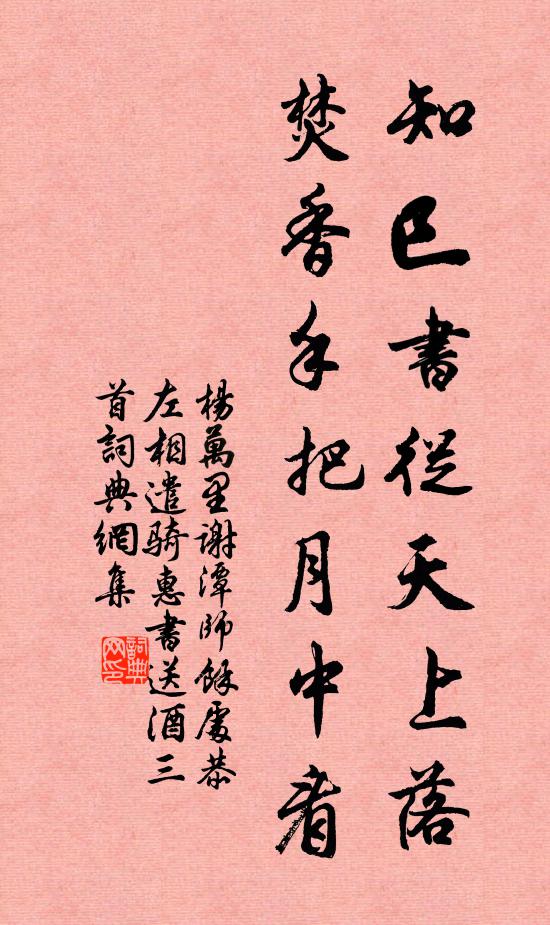 知已書從天上落
焚香手把月中看
楊萬里謝潭帥餘處恭
左相遣骑惠書送酒三
首詞典網集
詞典网印